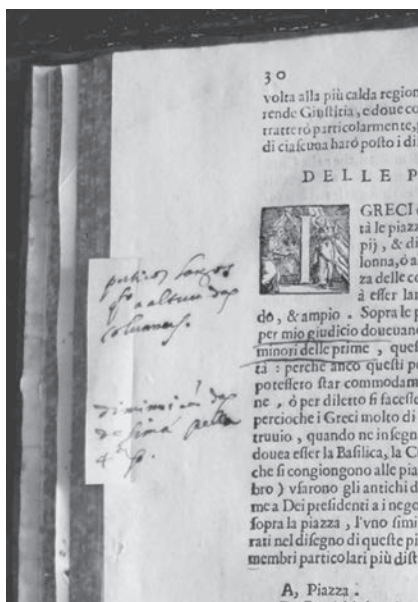 30
volta alla più calda region
rende Giustitia, e doue co
tratterò particolarmente,
di ciascuna harò posto i di
DELLE P
I GRECI
tà le piazz
pij, & di
lonna, ò a
za delle co
à esser lar
do, & ampio. Sopra le p
per mio giudicio doueuano
minori delle prime, ques
tà: perche anco questi po
potessero star commodam
ne, ò per diletto si facesse
percioche i Greci molto di
truuio, quando ne insegn
douea esser la Basilica, la C
che si congiongono alle pia
bro) vsarono gli antichi d
me a Dei presidenti a i nego
sopra la piazza, l'vno simi
rati nel disegno di queste pi
membri particolari più dist
A, Piazza.